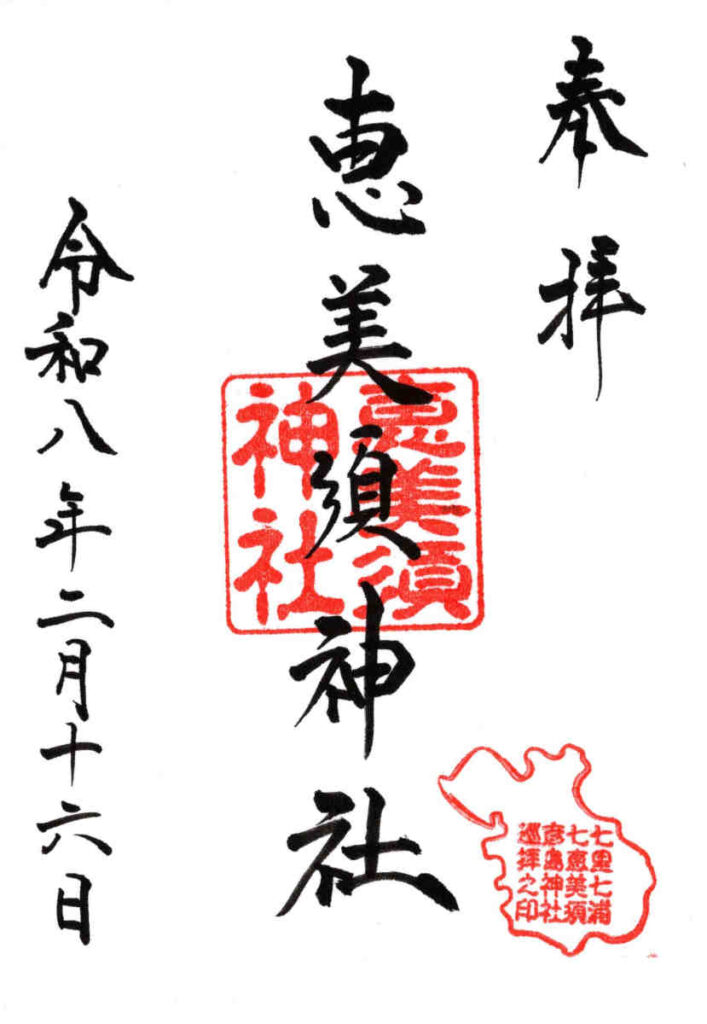 奉拝
恵美須神社
恵美須
神社
令和八年二月十六日
七里七浦
七恵美須
彦島神社
巡拝之印